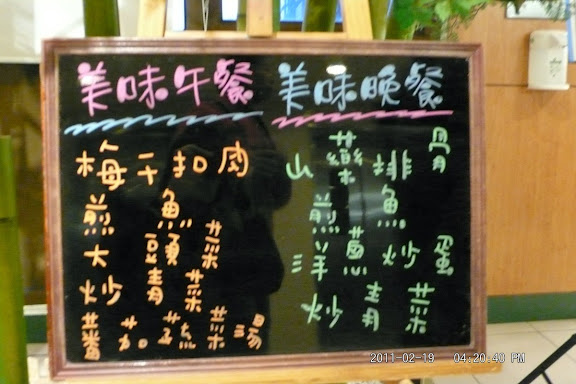 美味午餐
梅干扣肉
煎魚
大頭菜
炒青菜
蕃茄蔬菜湯
美味晚餐
山藥排骨
煎魚
洋蔥炒蛋
炒青菜
2011-02-19 04:20:40 PM